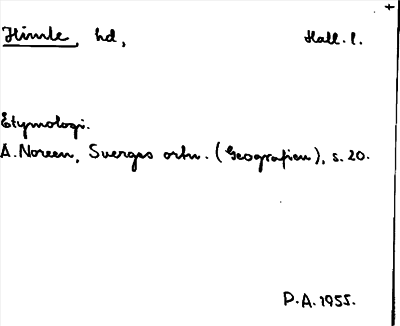 Himle, hd, Hall. l.
Etymologi.
A. Noreen, Sverges ortn. (Geografien), s. 20.
P.A. 1955.